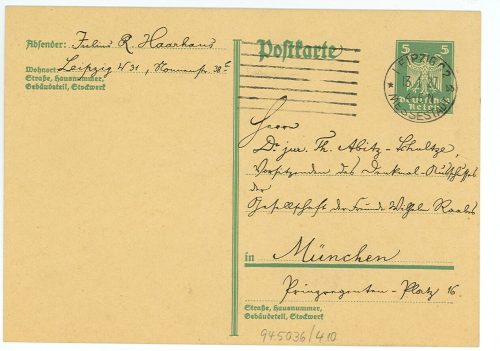 Absender: Julius R. Haarhaus
Wohnort: Leipzig W 31, Nonnenstr. 38
Straße, Hausnummer,
Gebäudeteil, Stockwerk
Postkarte
5 5
Deutsches
Reich
LEIPZIG
MESSESTADT
Herrn
Dr. jur. Th. Abitz-Schultze,
Vorsitzenden des Denkmal-Ausschusses
der
Gesellschaft der Freunde Wilhelm Raabes
in München
Prinzregenten-Platz 16.
Straße, Hausnummer,
Gebäudeteil, Stockwerk
945036/410